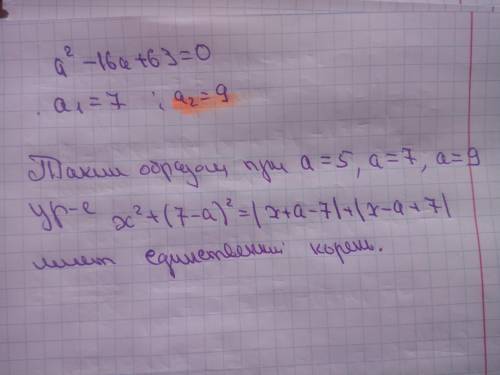 a² - 16a + 63 = 0
a₁ = 7 ; a₂ = 9
Таким образом при a = 5, a = 7, a = 9
ур-е x² + (7-a)² = |x+a-7| + |x-a+7|
имеет единственный корень.